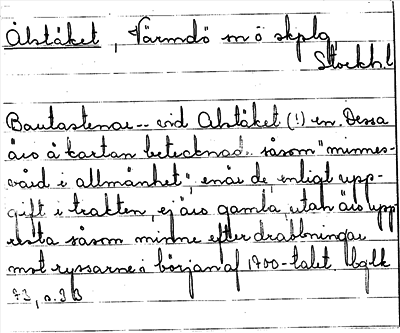 Ålstäket, Värmdö m ö skplg
Stockh.l
Bautastenar -- vid Alstäket (!) en. Dessa
äro å kartan betecknad.. såsom "minnes-
vård i allmänhet", enär de, enligt upp-
gift i trakten, ej äro gamla, utan äro upp
resta såsom minne efter drabbningar
mot ryssarne i början af 1700-talet. bglk
73, s. 3 B